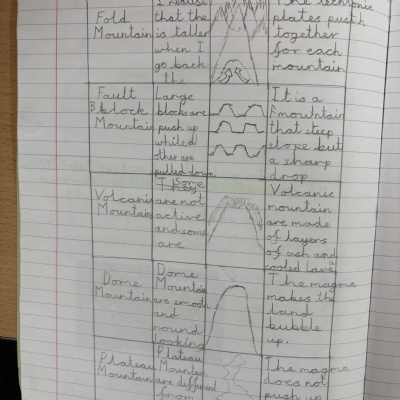 Fold
Mountain
I realise
that the
is taller
when I
go back
the
The tectonic
plates push
together
for each
mountain
Fault
Block
Mountain
Large
blocks are
push up
whiled
other are
pulled down
It is a
mountain
that steep
slope but
a sharp
drop
Volcanic
Mountain
Some
are not
active
and some
are
Volcanic
mountain
are made
of layers
of ash and
cooled lava
Dome
Mountain
Dome
Mountain
are smooth
and
round
looking
The magma
makes the
land
bubble
up.
Plateau
Mountain
Plateau
Mountain
are different
from
The magma
does not
push up